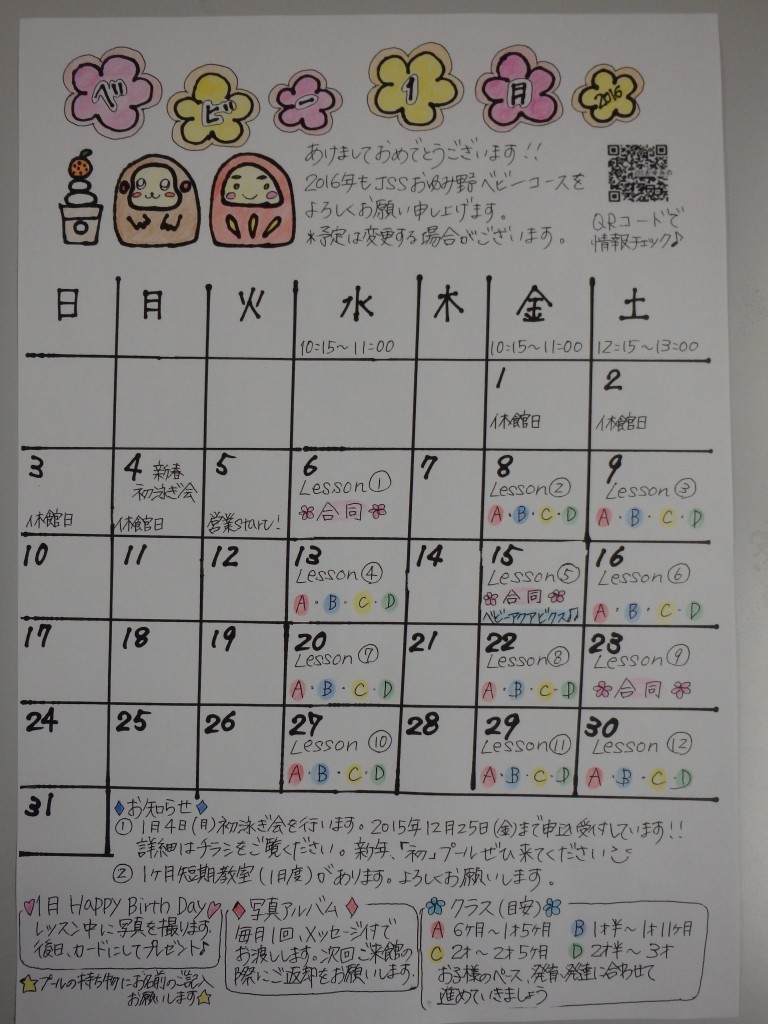 ベビー 1月 2016
あけましておめでとうございます!!
2016年もJSSおゆみ野ベビーコースを
よろしくお願い申し上げます。
*予定は変更する場合がございます。
QRコードで
情報チェック♪
日 月 火 水 木 金 土
10:15～11:00 10:15～11:00 12:15～13:00
1 2
休館日 休館日
3 4 新春 5 6 7 8 9
初泳ぎ会 Lesson① Lesson② Lesson③
休館日 休館日 営業start! 合同 A・B・C・D A・B・C・D
10 11 12 13 14 15 16
Lesson④ Lesson⑤ Lesson⑥
A・B・C・D 合同 A・B・C・D
ベビーアクアビクス♫
17 18 19 20 21 22 23
Lesson⑦ Lesson⑧ Lesson⑨
A・B・C・D A・B・C・D 合同
24 25 26 27 28 29 30
Lesson⑩ Lesson⑪ Lesson⑫
A・B・C・D A・B・C・D A・B・C・D
31
お知らせ
① 1月4日(月)初泳ぎ会を行います。2015年12月25日(金)まで申込受付しています!!
詳細はチラシをご覧ください。新年、「初」プールぜひ来てください
② 1ヶ月短期教室(1月度)があります。よろしくお願いします。
1月 Happy Birth Day
レッスン中に写真を撮ります。
後日、カードにしてプレゼント♪
☆プールの持ち物にお名前のご記入
お願いします☆
写真アルバム
毎月1回、メッセージ付で
お渡しします。次回ご来館の
際にご返却をお願いします。
クラス(目安)
A 6ヶ月～1才5ヶ月 B 1才半～1才11ヶ月
C 2才～2才5ヶ月 D 2才半～3才
お子様のペース、発育、発達に合わせて
進めていきましょう